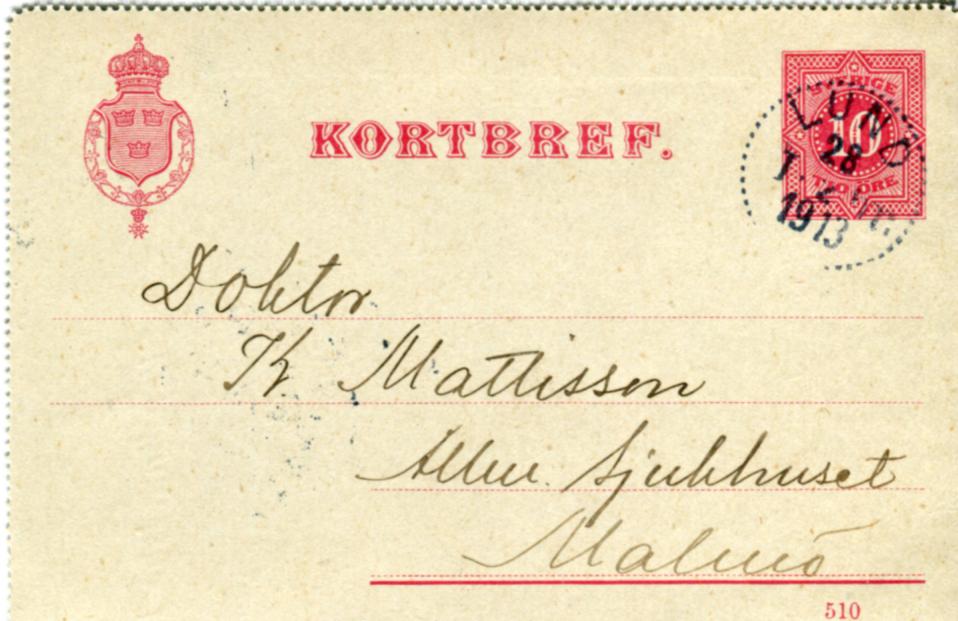 KORTBREF.
SVERIGE
10
TIO ÖRE
LUND
28
1913
Doktor
K Mattisson
Allm. Sjukhuset
Malmö
510